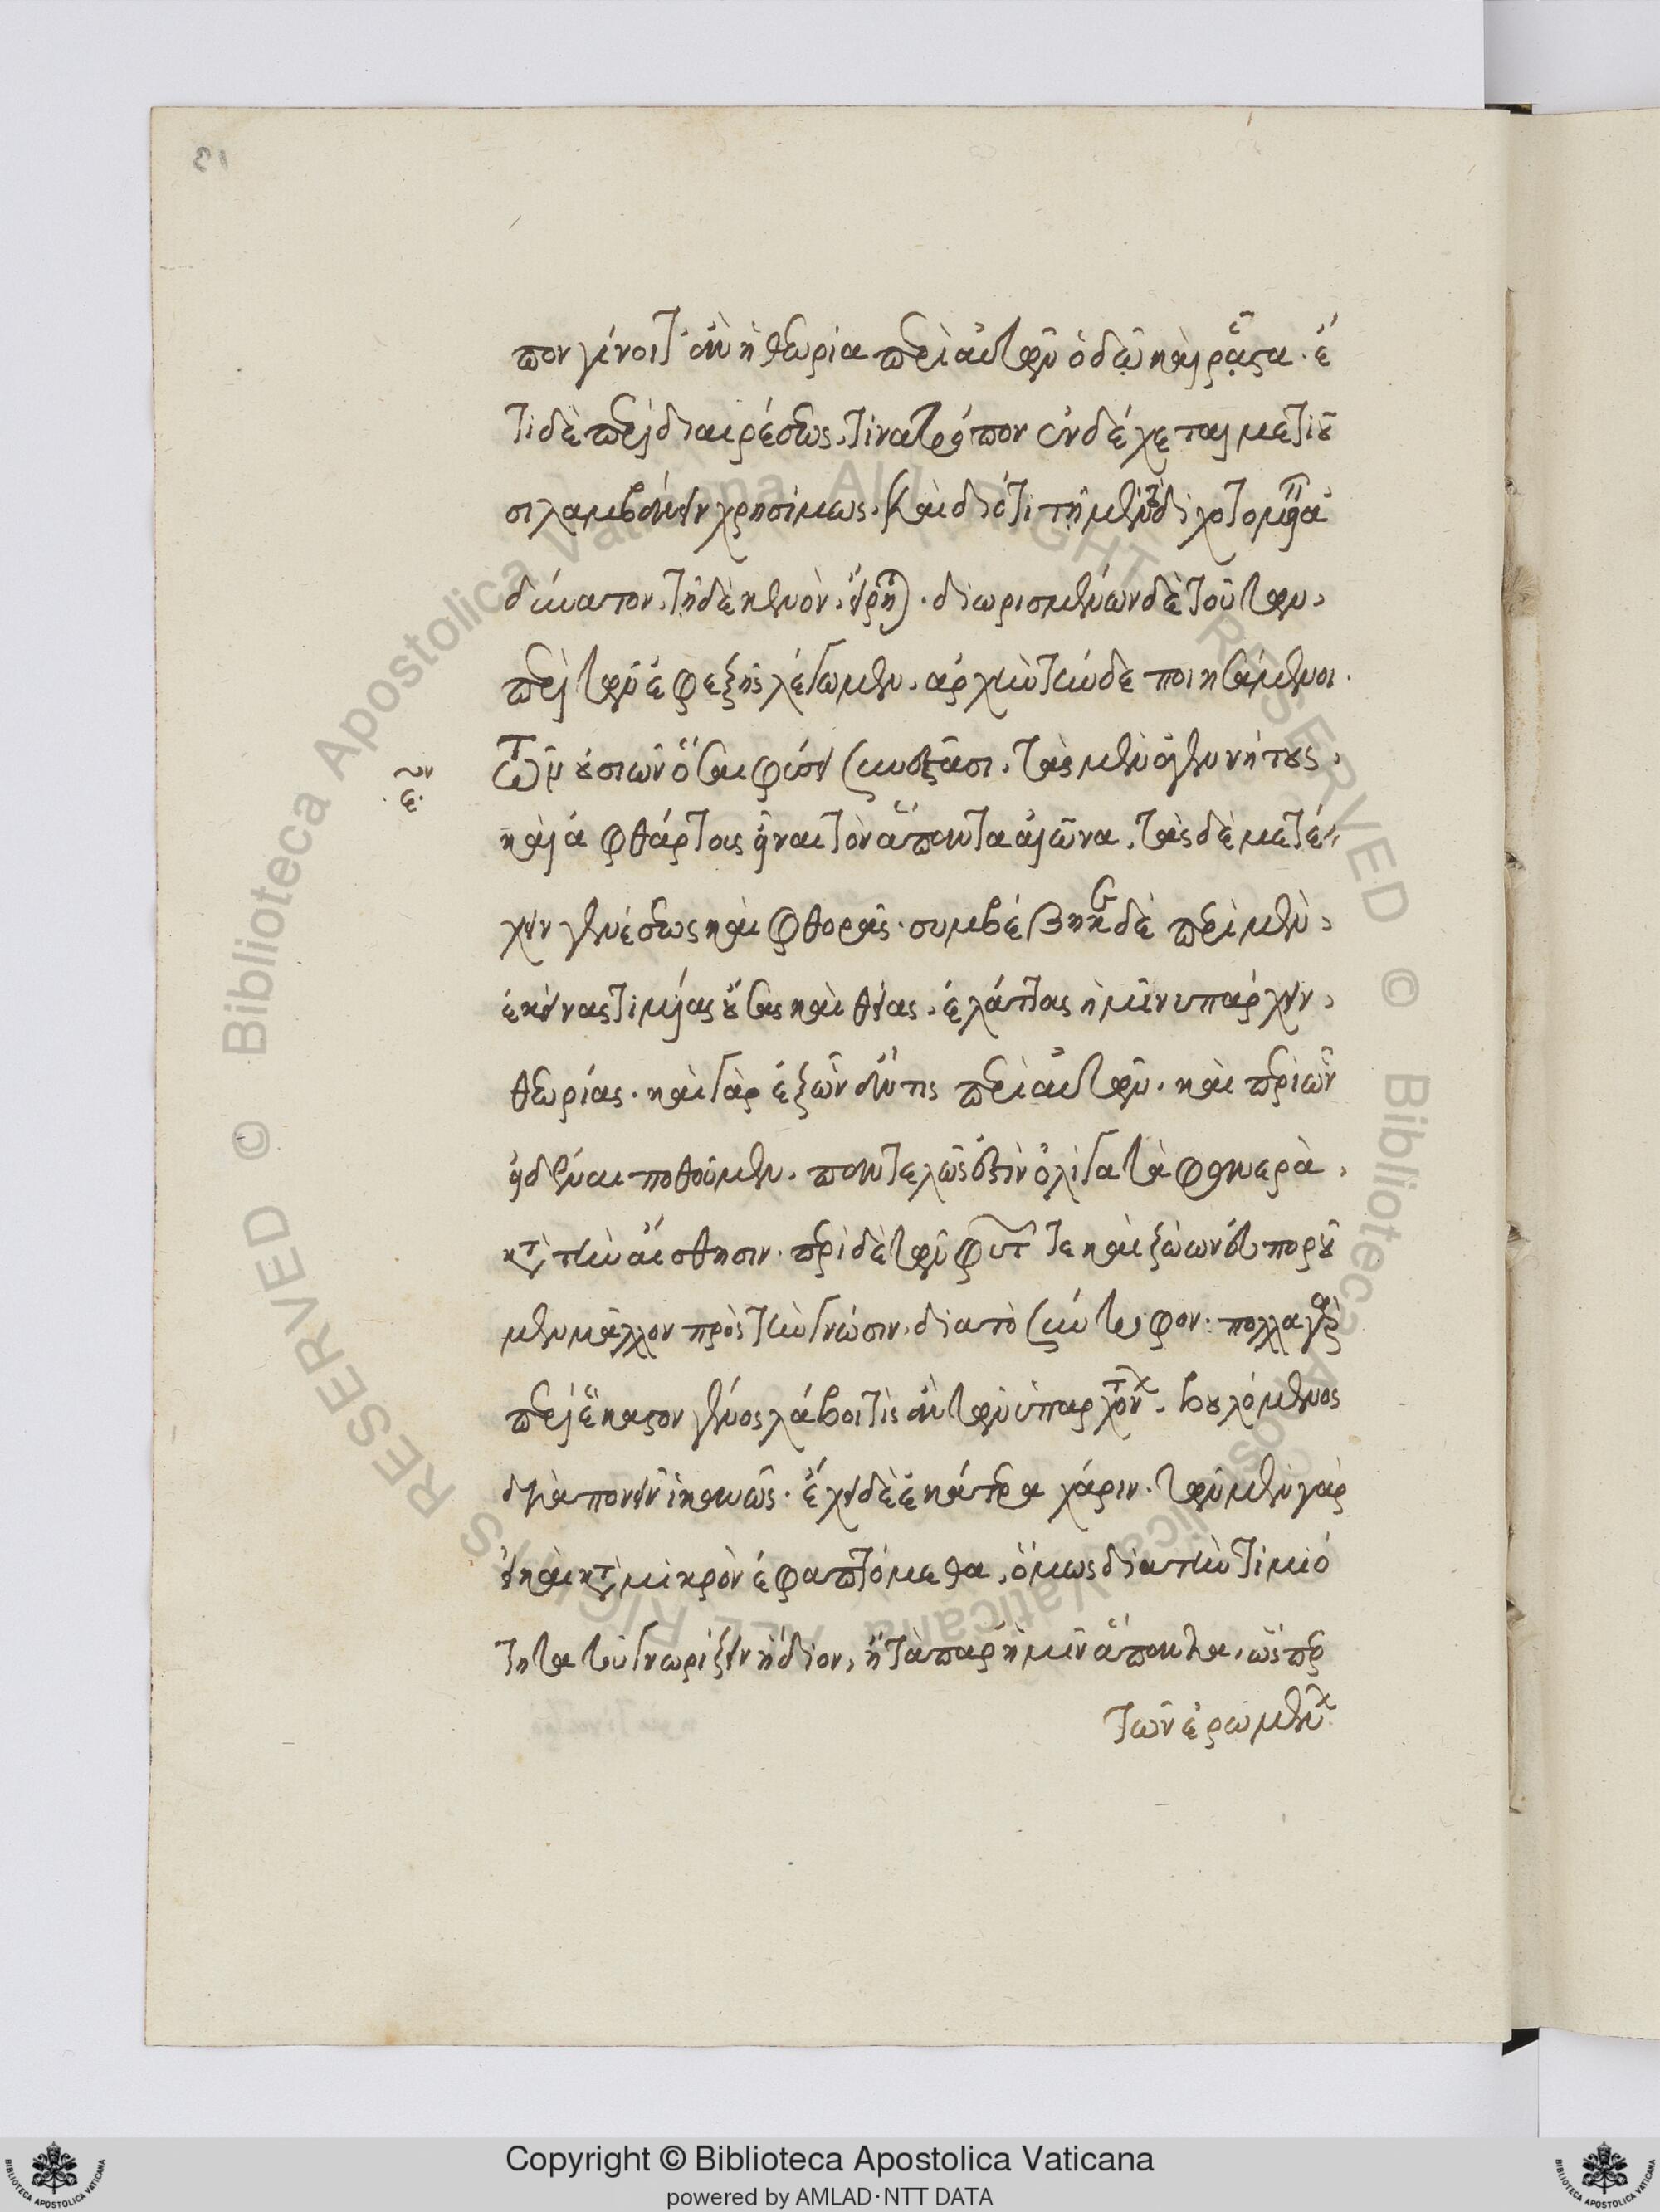 πον γίνοιτ' ἂν ἡ θεωρία περὶ αὐτῶν ὁδῶ καὶ ῥᾶστα. ἔ
τι δὲ περὶ διαιρέσεως, τίνα τρόπον ἐνδέχεται μετιοῦ
σι λαμβάνειν χρησίμως. καὶ διότι τῆ μὲν τὸ διχοτομεῖν ἀ
δύνατον, τῆ δὲ κενὸν, εἴρηται. διωρισμένων δὲ τούτων,
περὶ τῶν ἐφεξῆς λέγωμεν, ἀρχὴν τήνδε ποιησάμενοι.
Τῶν οὐσιῶν ὅσαι φύσει συνεστᾶσι, τὰς μὲν ἀγενήτους,
καὶ ἀφθάρτους εἶναι τὸν ἅπαντα αἰῶνα, τὰς δὲ μετέ
χειν γενέσεως καὶ φθορᾶς. συμβέβηκε δὲ περὶ μὲν,
ἐκείνας τιμίας οὔσας καὶ θείας, ἐλάττας ἡμῖν ὑπάρχειν,
θεωρίας. καὶ γὰρ ἐξ ὧν ἄν τις περὶ αὐτῶν. καὶ περὶ ὧν
εἰδέναι ποθοῦμεν. παντελῶς ἐστὶν ὀλίγα τὰ φανερὰ,
κατὰ τὴν αἴσθησιν. περὶ δὲ τῶν φυτῶν τε καὶ ζώων εὐποροῦ
μεν μᾶλλον πρὸς τὴν γνῶσιν, διὰ τὸ σύντροφον. πολλὰ γὰρ
περὶ ἕκαστον γένος λάβοι τὶς ἂν τῶν ὑπαρχόντων, βουλόμενος
διαπονεῖν ἱκανῶς. ἔχει δὲ ἑκάτερα χάριν. τῶν μὲν γὰρ
εἰ καὶ κατὰ μικρὸν ἐφαπτόμεθα, ὅμως διὰ τὴν τιμιό
τητα τοῦ γνωρίζειν ἥδιον, ἢ τὰ παρ' ἡμῖν ἅπαντα, ὥσπερ
τῶν ἐρωμένων
Copyright © Biblioteca Apostolica Vaticana
powered by AMLAD·NTT DATA